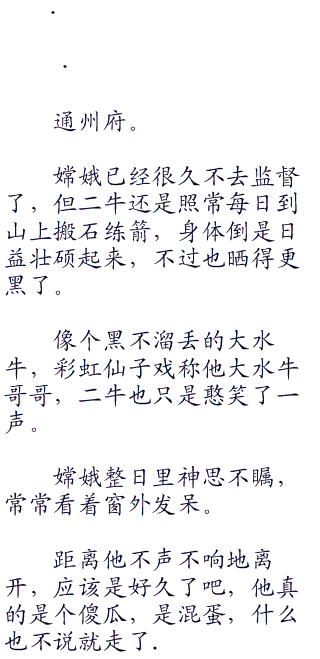 .
.
通州府。
嫦娥已经很久不去监督
了，但二牛还是照常每日到
山上搬石练箭，身体倒是日
益壮硕起来，不过也晒得更
黑了。
像个黑不溜丢的大水
牛，彩虹仙子戏称他大水牛
哥哥，二牛也只是憨笑了一
声。
嫦娥整日里神思不瞩，
常常看着窗外发呆。
距离他不声不响地离
开，应该是好久了吧，他真
的是个傻瓜，是混蛋，什么
也不说就走了.